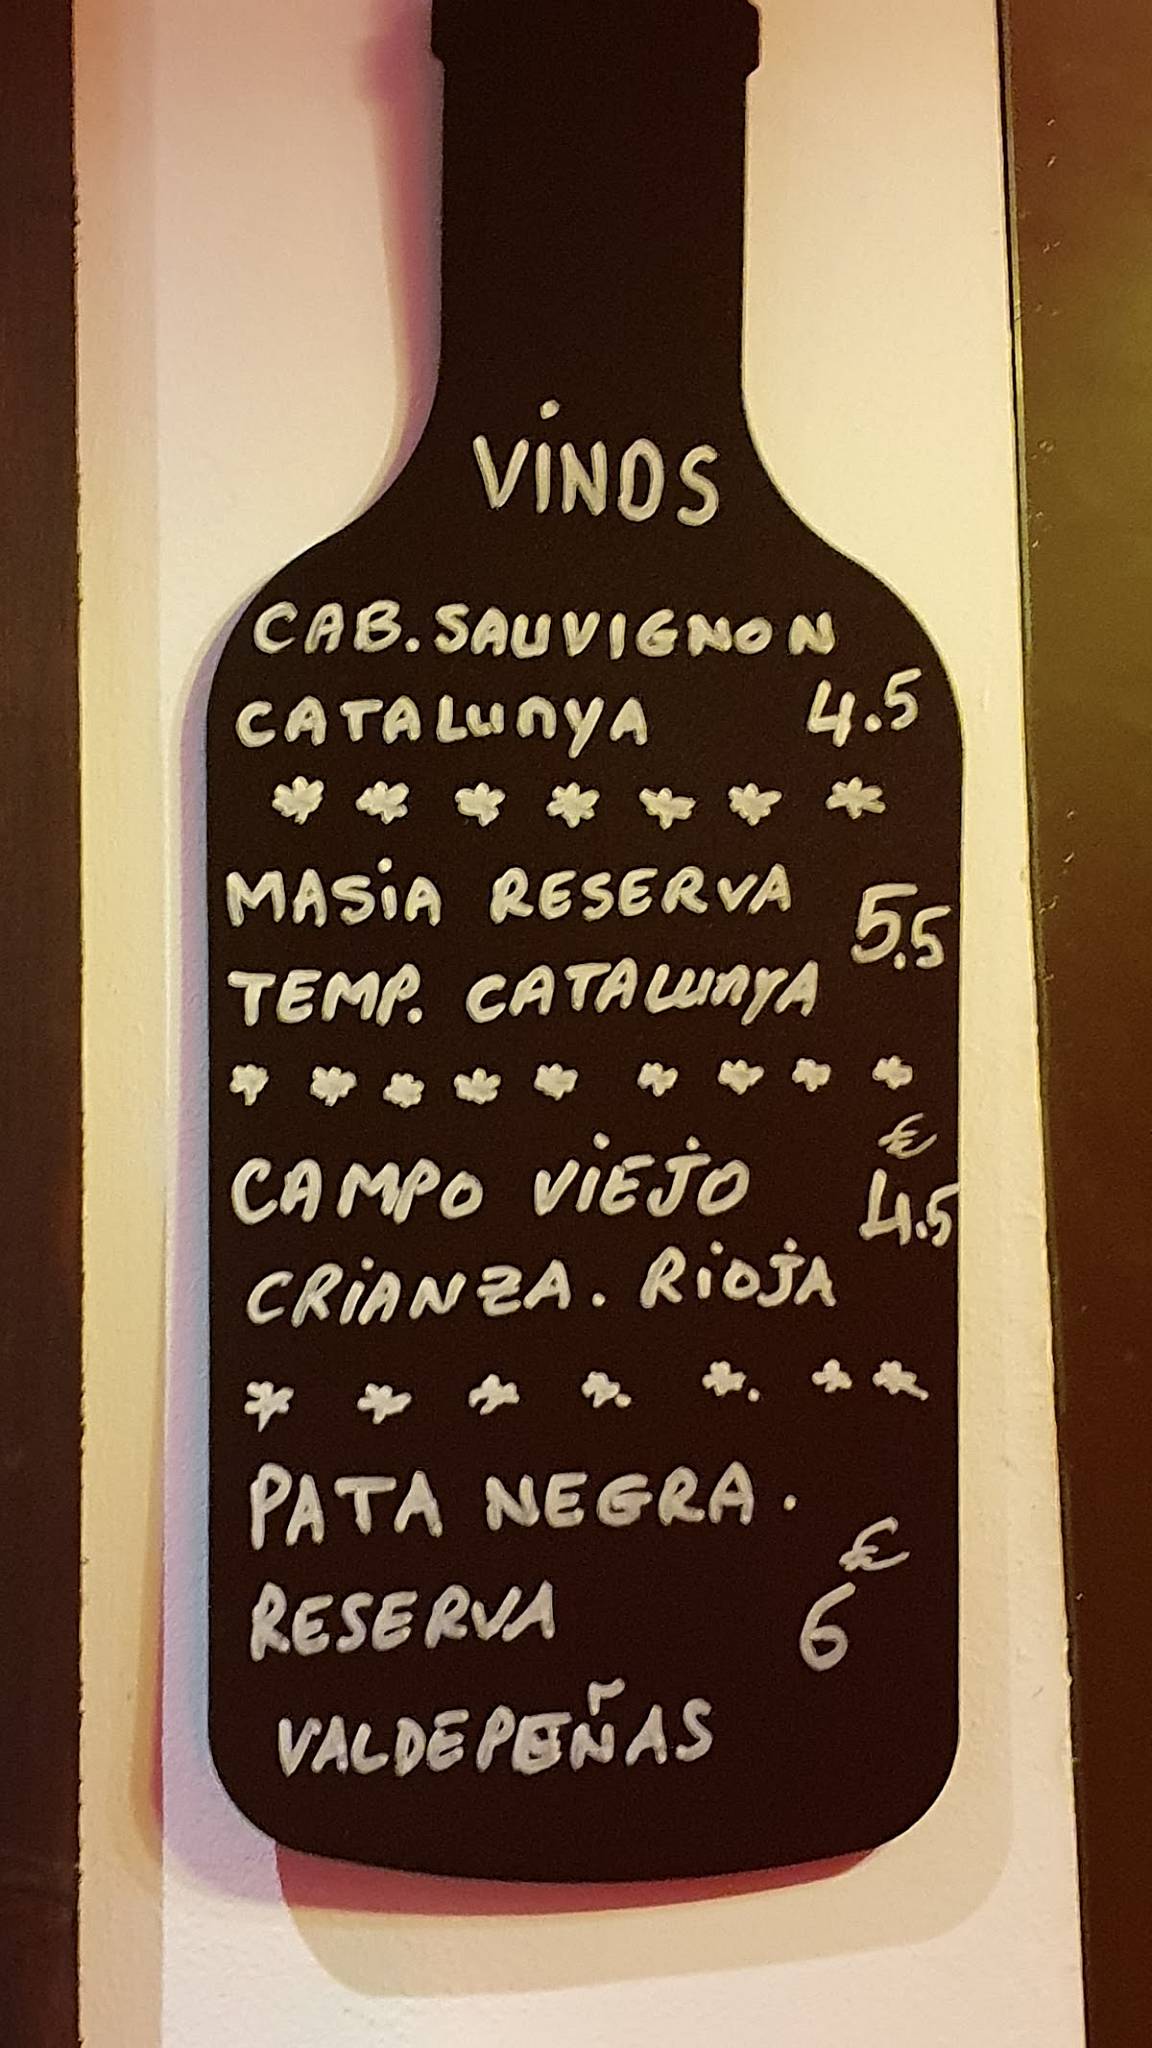 VINOS
CAB. SAUVIGNON
CATALUNYA 4.5
* * * * * * *
MASIA RESERVA 5.5
TEMP. CATALUNYA
* * * * * * * * *
€
CAMPO VIEJO 4.5
CRIANZA. RIOJA
* * * * * * *
PATA NEGRA.
€
RESERVA 6
VALDEPEÑAS